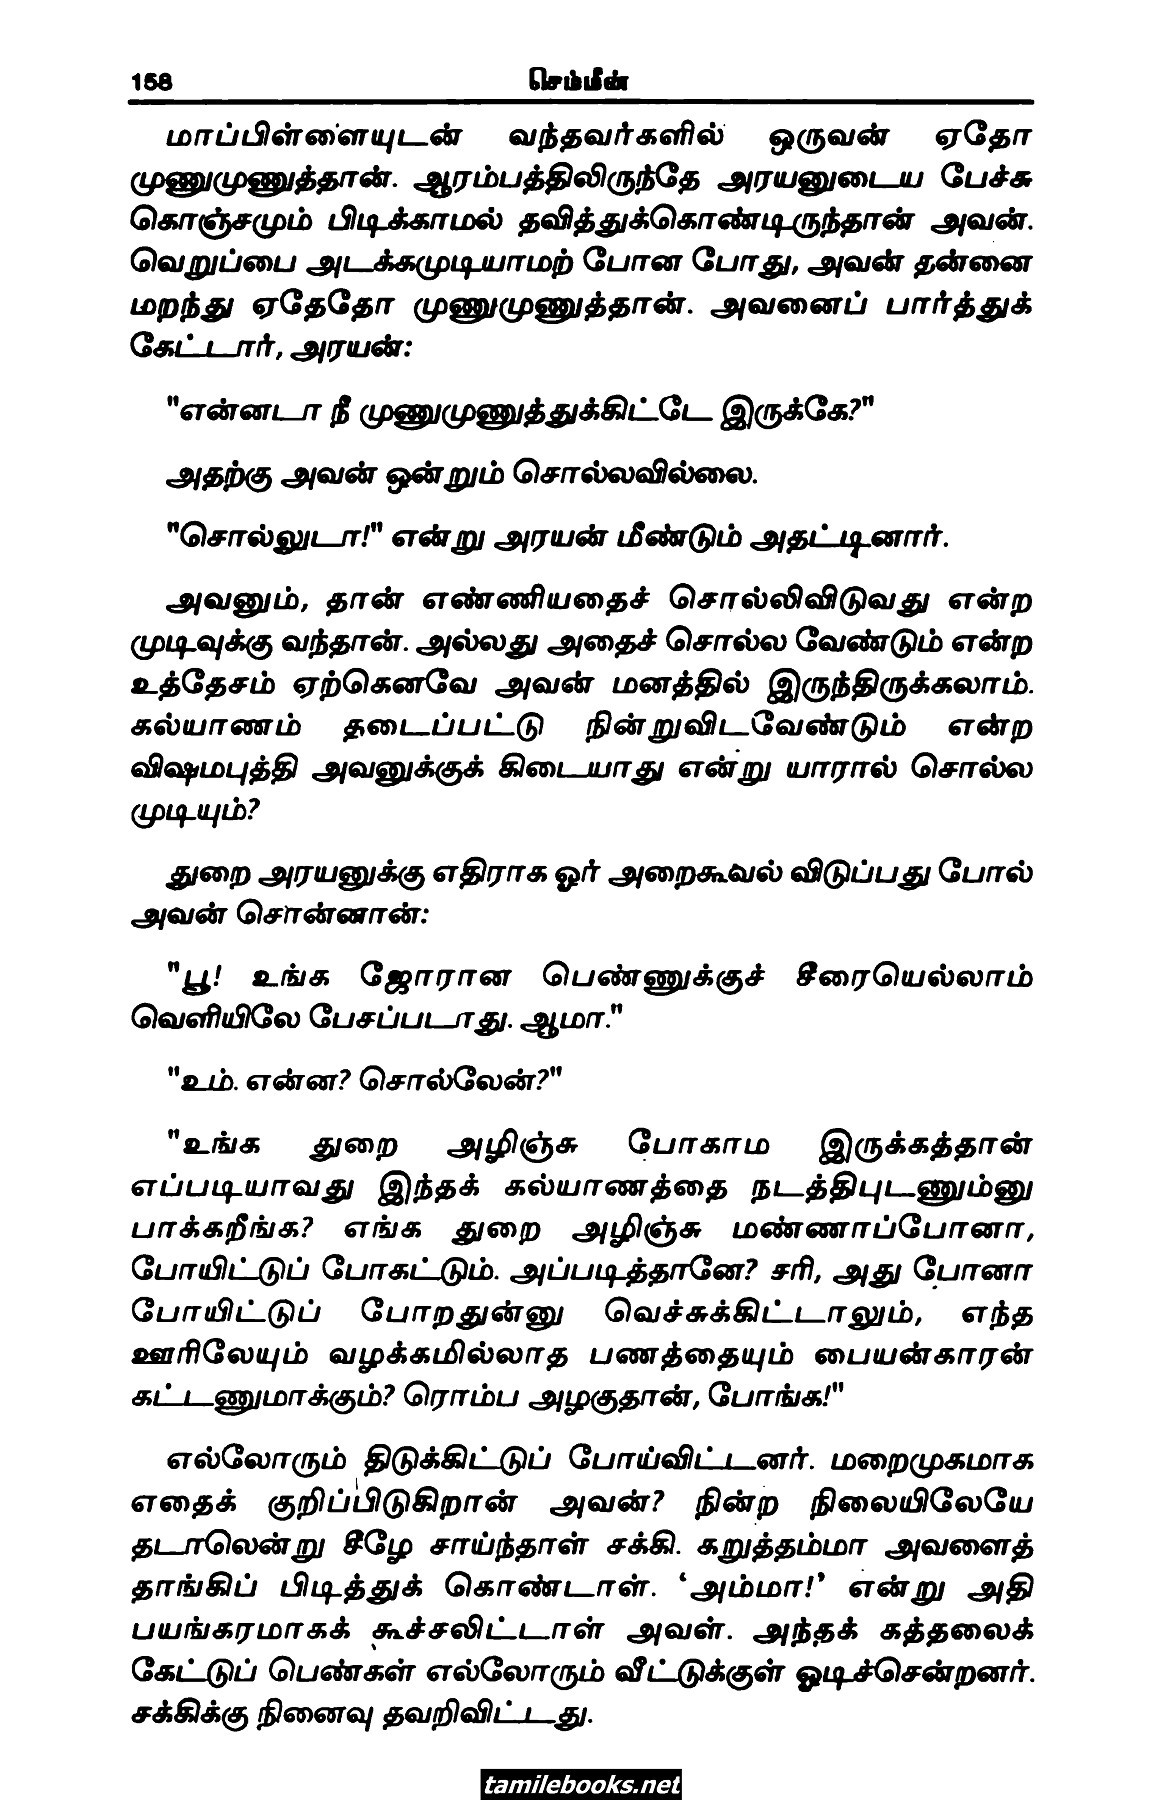 158 செம்மீன்
மாப்பிள்ளையுடன் வந்தவர்களில் ஒருவன் ஏதோ
முணுமுணுத்தான். ஆரம்பத்திலிருந்தே அரயனுடைய பேச்சு
கொஞ்சமும் பிடிக்காமல் தவித்துக்கொண்டிருந்தான் அவன்.
வெறுப்பை அடக்கமுடியாமற் போன போது, அவன் தன்னை
மறந்து ஏதேதோ முணுமுணுத்தான். அவனைப் பார்த்துக்
கேட்டார், அரயன்:
"என்னடா நீ முணுமுணுத்துக்கிட்டே இருக்கே?"
அதற்கு அவன் ஒன்றும் சொல்லவில்லை.
"சொல்லுடா!" என்று அரயன் மீண்டும் அதட்டினார்.
அவனும், தான் எண்ணியதைச் சொல்லிவிடுவது என்ற
முடிவுக்கு வந்தான். அல்லது அதைச் சொல்ல வேண்டும் என்ற
உத்தேசம் ஏற்கெனவே அவன் மனத்தில் இருந்திருக்கலாம்.
கல்யாணம் தடைப்பட்டு நின்றுவிடவேண்டும் என்ற
விஷமபுத்தி அவனுக்குக் கிடையாது என்று யாரால் சொல்ல
முடியும்?
துறை அரயனுக்கு எதிராக ஓர் அறைகூவல் விடுப்பது போல்
அவன் சொன்னான்:
"பூ! உங்க ஜோரான பெண்ணுக்குச் சீரையெல்லாம்
வெளியிலே பேசப்படாது. ஆமா."
"உம். என்ன? சொல்லேன்?"
"உங்க துறை அழிஞ்சு போகாம இருக்கத்தான்
எப்படியாவது இந்தக் கல்யாணத்தை நடத்திபுடணும்னு
பாக்கறீங்க? எங்க துறை அழிஞ்சு மண்ணாப்போனா,
போயிட்டுப் போகட்டும். அப்படித்தானே? சரி, அது போனா
போயிட்டுப் போறதுன்னு வெச்சுக்கிட்டாலும், எந்த
ஊரிலேயும் வழக்கமில்லாத பணத்தையும் பையன்காரன்
கட்டணுமாக்கும்? ரொம்ப அழகுதான், போங்க!"
எல்லோரும் திடுக்கிட்டுப் போய்விட்டனர். மறைமுகமாக
எதைக் குறிப்பிடுகிறான் அவன்? நின்ற நிலையிலேயே
தடாலென்று கீழே சாய்ந்தாள் சக்கி. கறுத்தம்மா அவளைத்
தாங்கிப் பிடித்துக் கொண்டாள். ‘அம்மா!’ என்று அதி
பயங்கரமாகக் கூச்சலிட்டாள் அவள். அந்தக் கத்தலைக்
கேட்டுப் பெண்கள் எல்லோரும் வீட்டுக்குள் ஓடிச்சென்றனர்.
சக்கிக்கு நினைவு தவறிவிட்டது.
tamilebooks.net